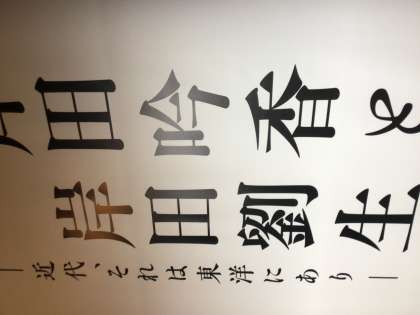 田吟香と
岸田劉生
―近代、それは東洋にあり―